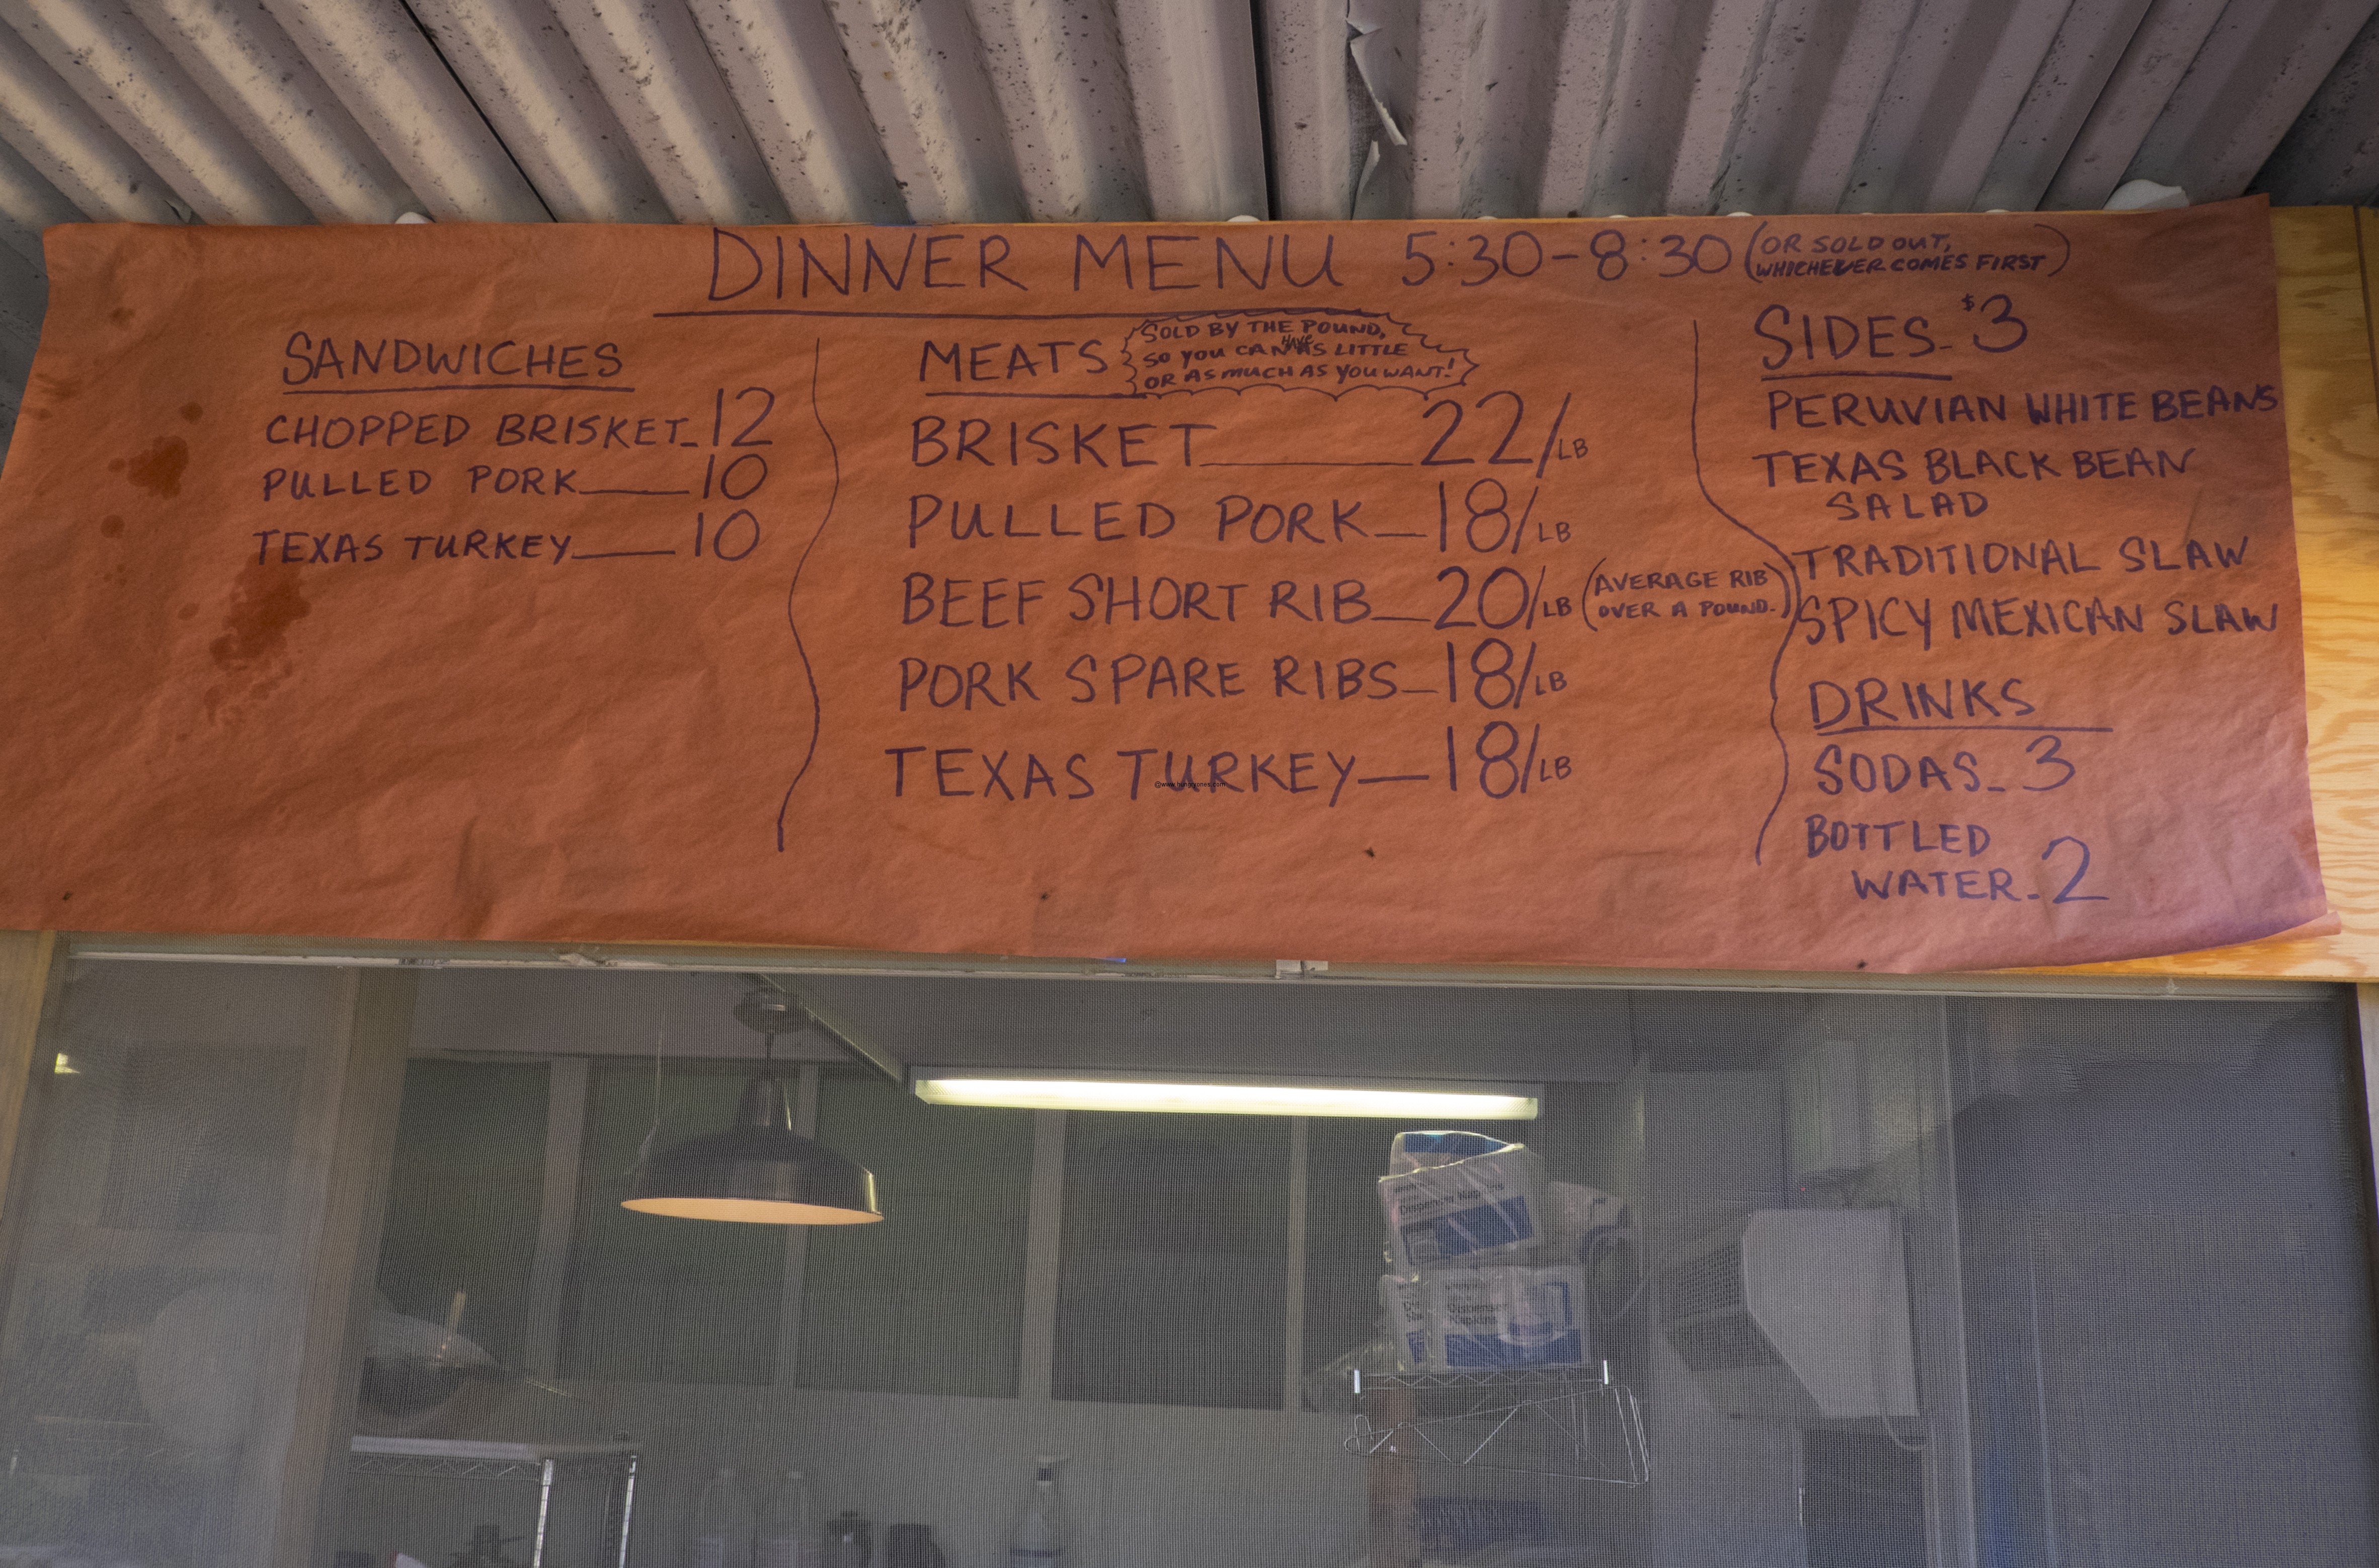 DINNER MENU 5:30-8:30 (OR SOLD OUT,
WHICHEVER COMES FIRST)
SANDWICHES
CHOPPED BRISKET_12
PULLED PORK___10
TEXAS TURKEY___10
MEATS
SOLD BY THE POUND,
SO YOU CAN HAVE AS LITTLE
OR AS MUCH AS YOU WANT!
BRISKET______22/LB
PULLED PORK_18/LB
BEEF SHORT RIB_20/LB (AVERAGE RIB
OVER A POUND.)
PORK SPARE RIBS_18/LB
TEXAS TURKEY_18/LB
SIDES_$3
PERUVIAN WHITE BEANS
TEXAS BLACK BEAN
SALAD
TRADITIONAL SLAW
SPICY MEXICAN SLAW
DRINKS
SODAS_3
BOTTLED
WATER_2
Dispenser Napkins
Dispenser
Napkins